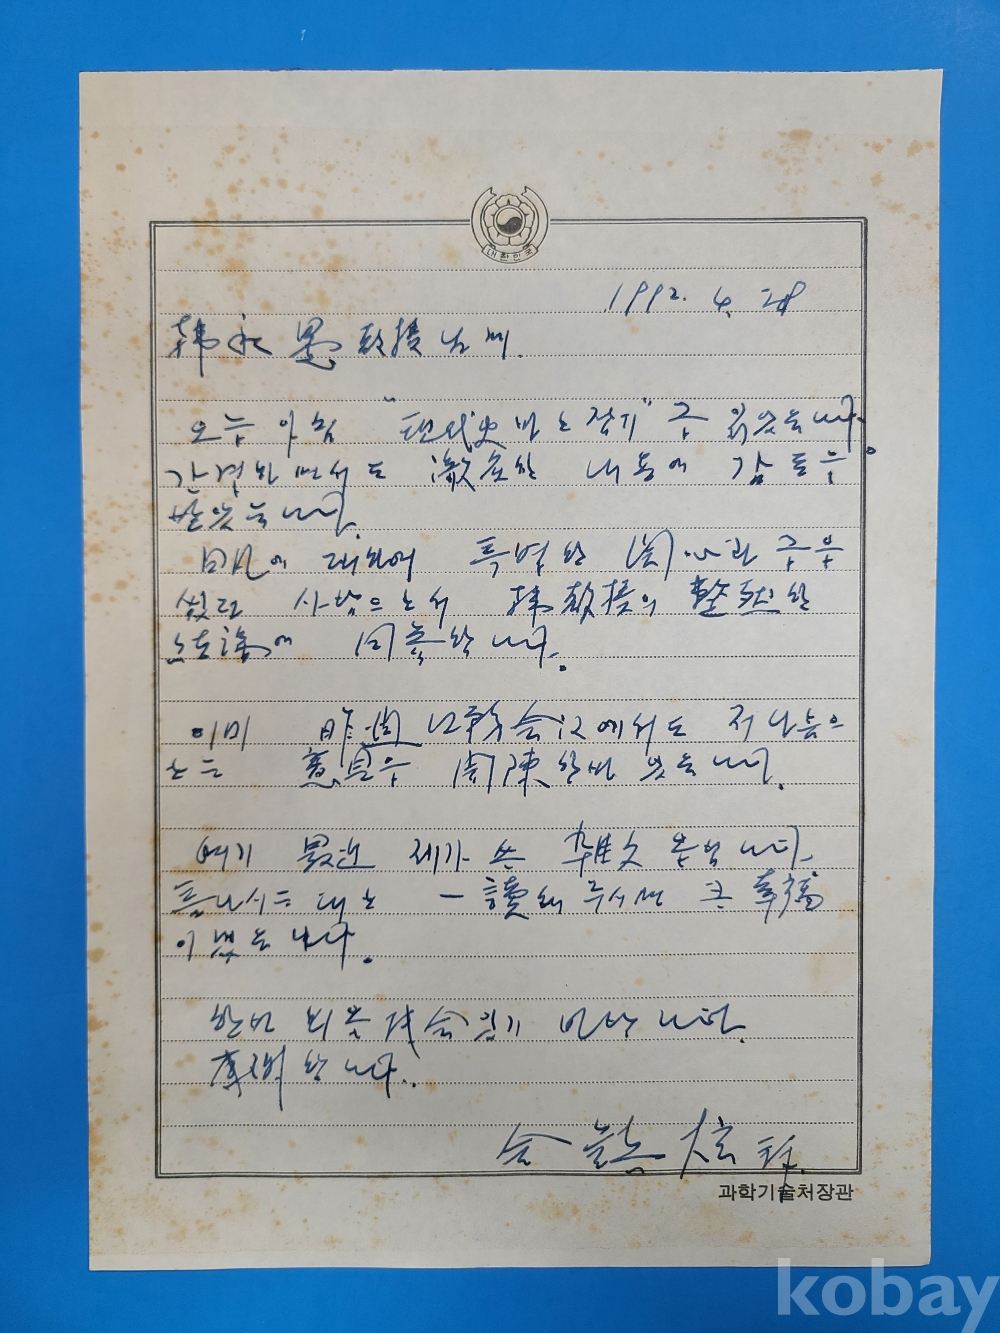 대한민국
1992. 4. 28
韓永愚 敎授님께.
오늘 아침 "現代史바로잡기"를 읽었습니다.
간결하면서도 激烈한 내용에 감동을
받았습니다.
에 대하여 특별한 関心과
사람으로서 韓敎授의 整然한
結論에 同意합니다.
이미 昨週 에서도 저 나름으
로는 意見을 開陳한바 있습니다.
여기 最近 제가 쓴 雜文 봅니다.
틈나시는대로 一讀해 주시면 큰 幸福
이겠습니다.
한번 뵈올 機会있기 바랍니다.
합니다..
과학기술처장관
kobay